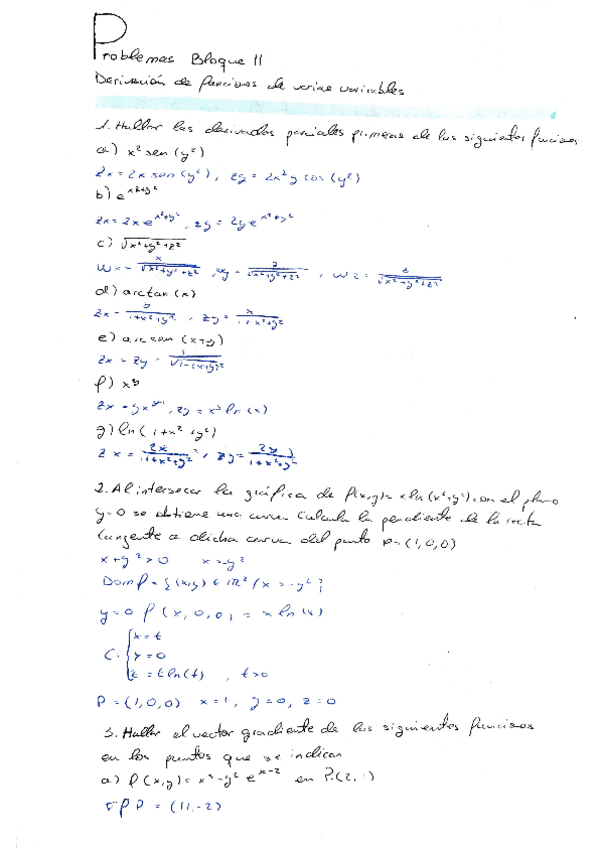 Problemas Bloque II
Derivación de funciones de varias variables
1. Hallar las derivadas parciales primeras de las siguientes funciones
a) x² sen (y²)
Zx = 2x sen (y²), Zy = 2x²y cos (y²)
b) e^(x²+y²)
Zx = 2x e^(x²+y²), Zy = 2y e^(x²+y²)
c) √(x²+y²+z²)
Wx = x/√(x²+y²+z²), /√(x²+y²+z²), Wz = z/√(x²+y²+z²)
d) arctan (x)
Zx = /1+x²y², Zy = x/1+x²y²
e) (x+y)
Zx = Zy = 1/√(1-(x+y)²)
f) x^y
Zx = yx^(y-1), Zy = x^y ln (x)
g) ln (1+x²+y²)
Zx = 2x/1+x²+y², Zy = 2y/1+x²+y²
2. Al intersecar la gráfica de f(x,y) = x ln (x+y²) con el plano
y=0 se obtiene una curva. Calcula la pendiente de la recta
tangente a dicha curva del punto P=(1,0,0)
x+y²>0 x>-y²
Dom f = {(x,y) ∈ ℝ² / x > -y²}
y=0 f(x,0,0) = x ln (x)
C: { x = t
y = 0
z = t ln(t), t>0
P = (1,0,0) x=1, y=0, z=0
3. Hallar el vector gradiente de las siguientes funciones
en los puntos que se indican
a) f(x,y) = x³-y² e^(x-2) en P.(2,1)
∇f P = (11,-2)